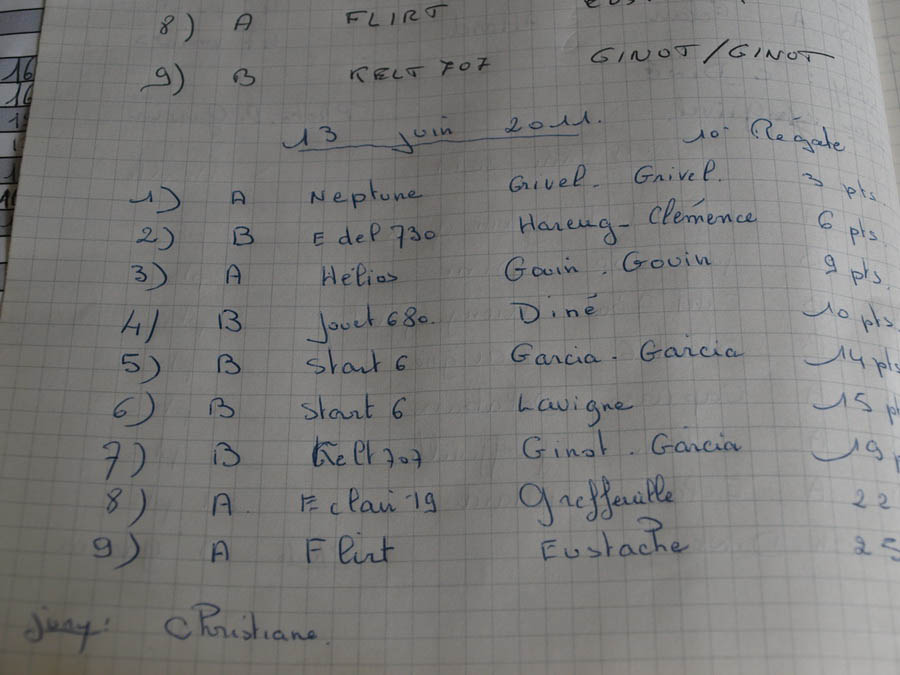 8) A FLIRT
9) B KELT 707 GINOT/GINOT
13 juin 2011. 10° Régate
1) A Neptune Grivel. Grivel. 3 pts.
2) B Edel 730 Hareng-Clémence 6 pts
3) A Hélios Gouin. Gouin 9 pts.
4) B Jouet 680. Diné 10 pts
5) B Start 6 Garcia. Garcia 14 pts
6) B Start 6 Lavigne 15 pt
7) B Kelt 707 Ginot. Garcia 19 p
8) A Eclair 19 Greffeuille 22
9) A Flirt Eustache 25
jury: Christiane.